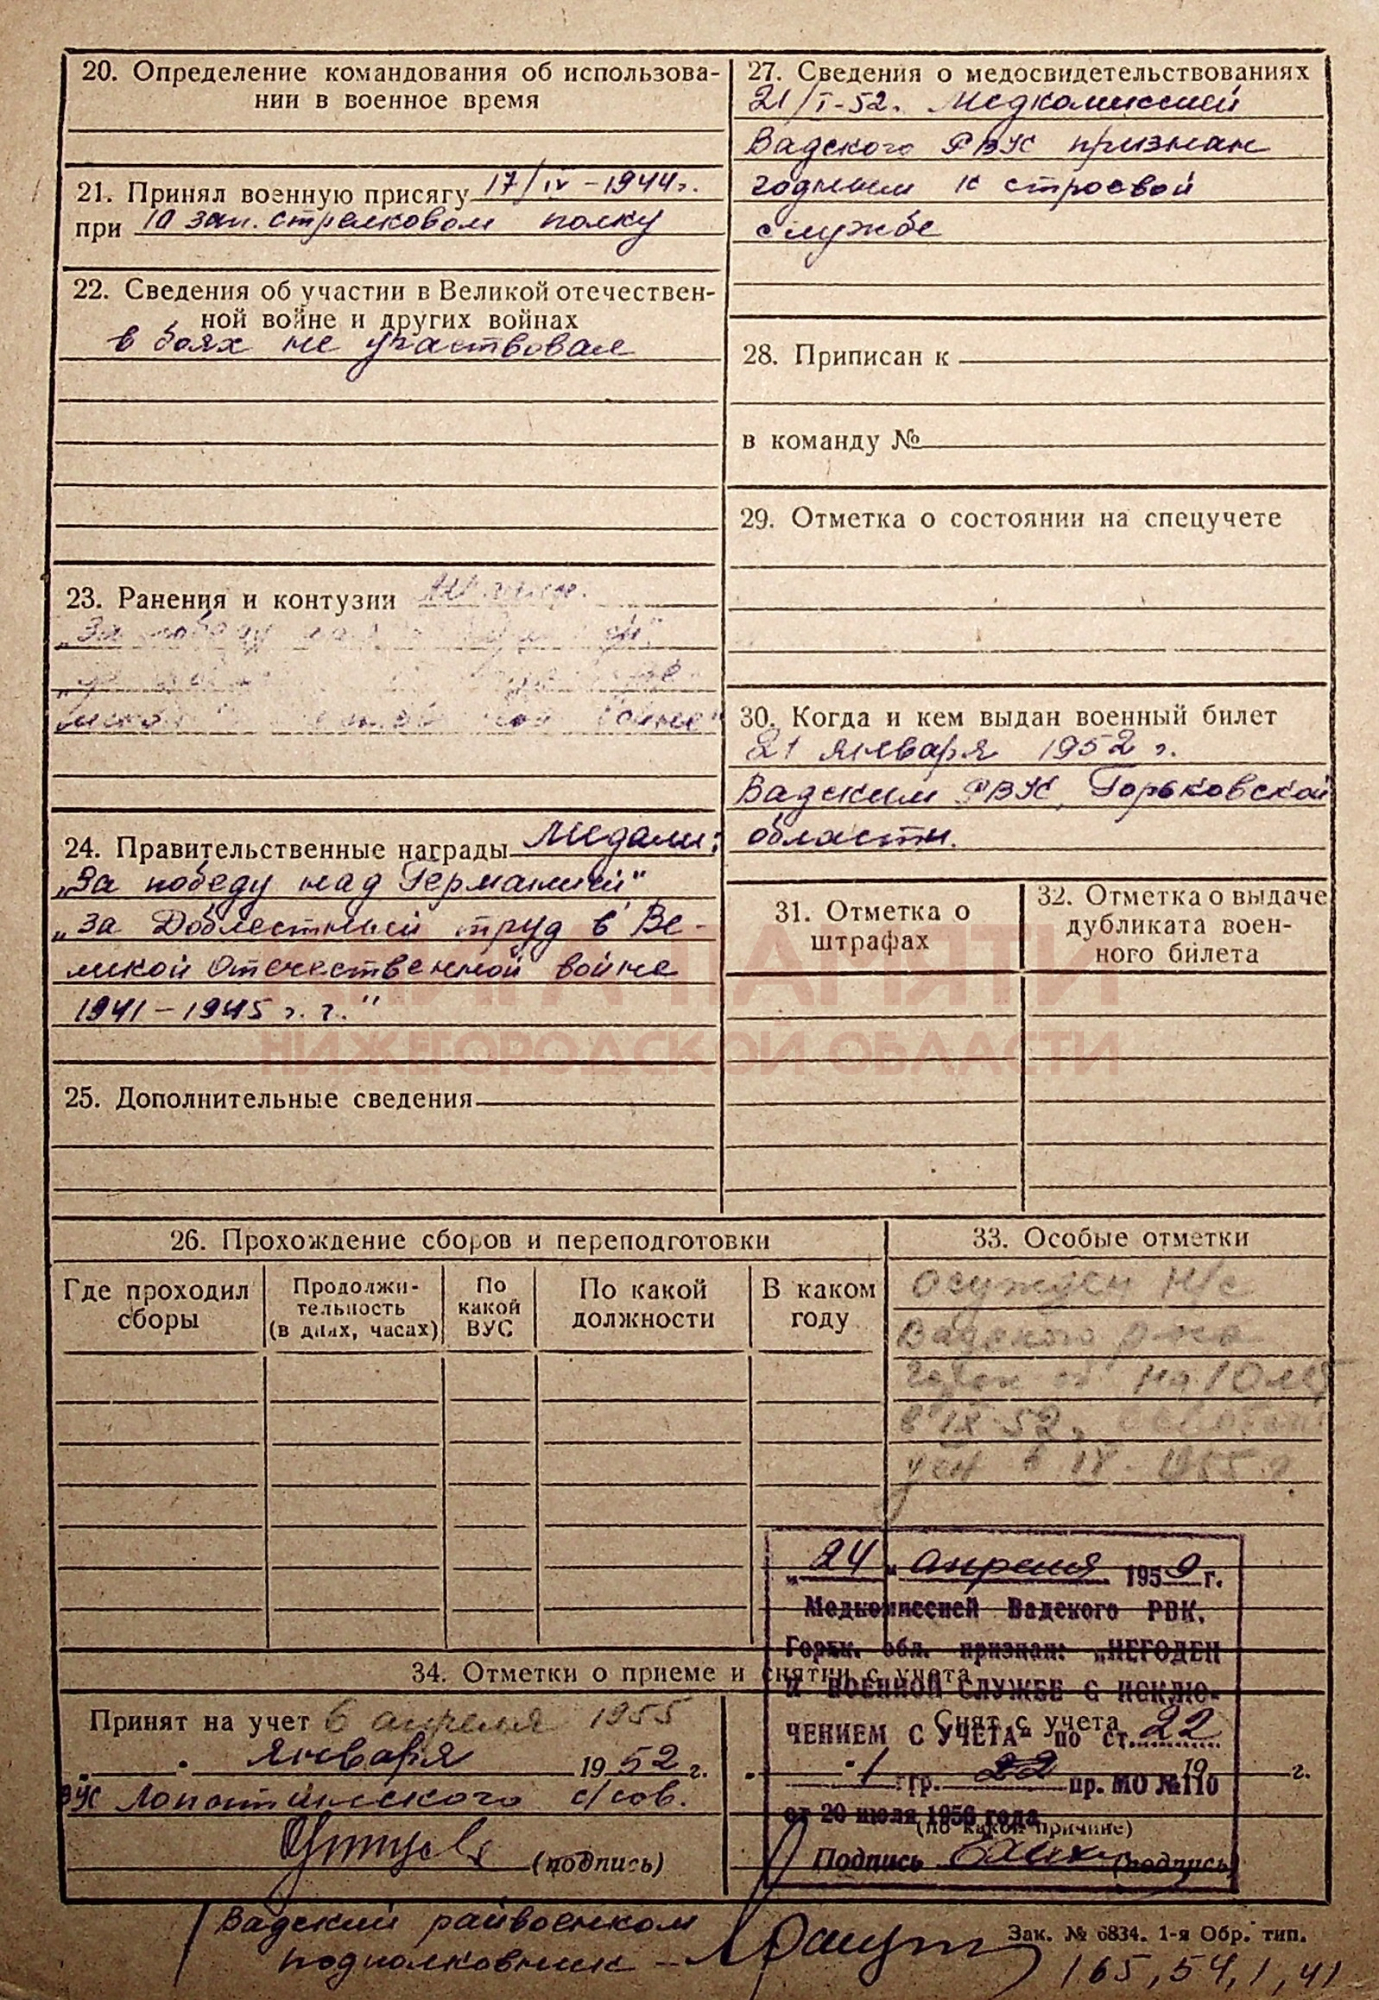 20. Определение командования об использова-
нии в военное время
21. Принял военную присягу 17/IV-1944г.
при 10 зап. стрелковом полку
22. Сведения об участии в Великой отечествен-
ной войне и других войнах
в боях не участвовал
23. Ранения и контузии
„За победу
24. Правительственные награды Медали:
„За победу над Германией"
„за Доблестный труд в Ве-
ликой Отечественной войне
1941-1945 г.г."
25. Дополнительные сведения
27. Сведения о медосвидетельствованиях
21/I-52. Медкомиссией
Вадского РВК признан
годным к строевой
службе
28. Приписан к
в команду №
29. Отметка о состоянии на спецучете
30. Когда и кем выдан военный билет
21 января 1952 г.
Вадским РВК, Горьковской
области.
31. Отметка о
штрафах
32. Отметка о выдаче
дубликата воен-
ного билета
КНИГА ПАМЯТИ
НИЖЕГОРОДСКОЙ ОБЛАСТИ
26. Прохождение сборов и переподготовки
Где проходил
сборы
Продолжи-
тельность
(в днях, часах)
По
какой
ВУС
По какой
должности
В каком
году
33. Особые отметки
осужден н/с
Вадского р-на
на 10 лет
в IX-52,
ден в IV-1955 г
„24" апреля 1959 г.
Медкомиссией Вадского РВК,
Горьк. обл. признан: „НЕГОДЕН
К ВОЕННОЙ СЛУЖБЕ С ИСКЛЮ-
ЧЕНИЕМ С УЧЕТА" по ст. 22
1 гр. 22 пр. МО № 110
от 20 июля 1956 года
Подпись
34. Отметки о приеме и снятии с учета
Принят на учет 6 апреля 1955
" " января 1952 г.
ВУС Лопатинского с/сов.
(подпись)
Снят с учета
" " 19 г.
(по какой причине)
(подпись)
Вадский райвоенком
подполковник -
Зак. № 6834. 1-я Обр. тип.
165,54,1,41